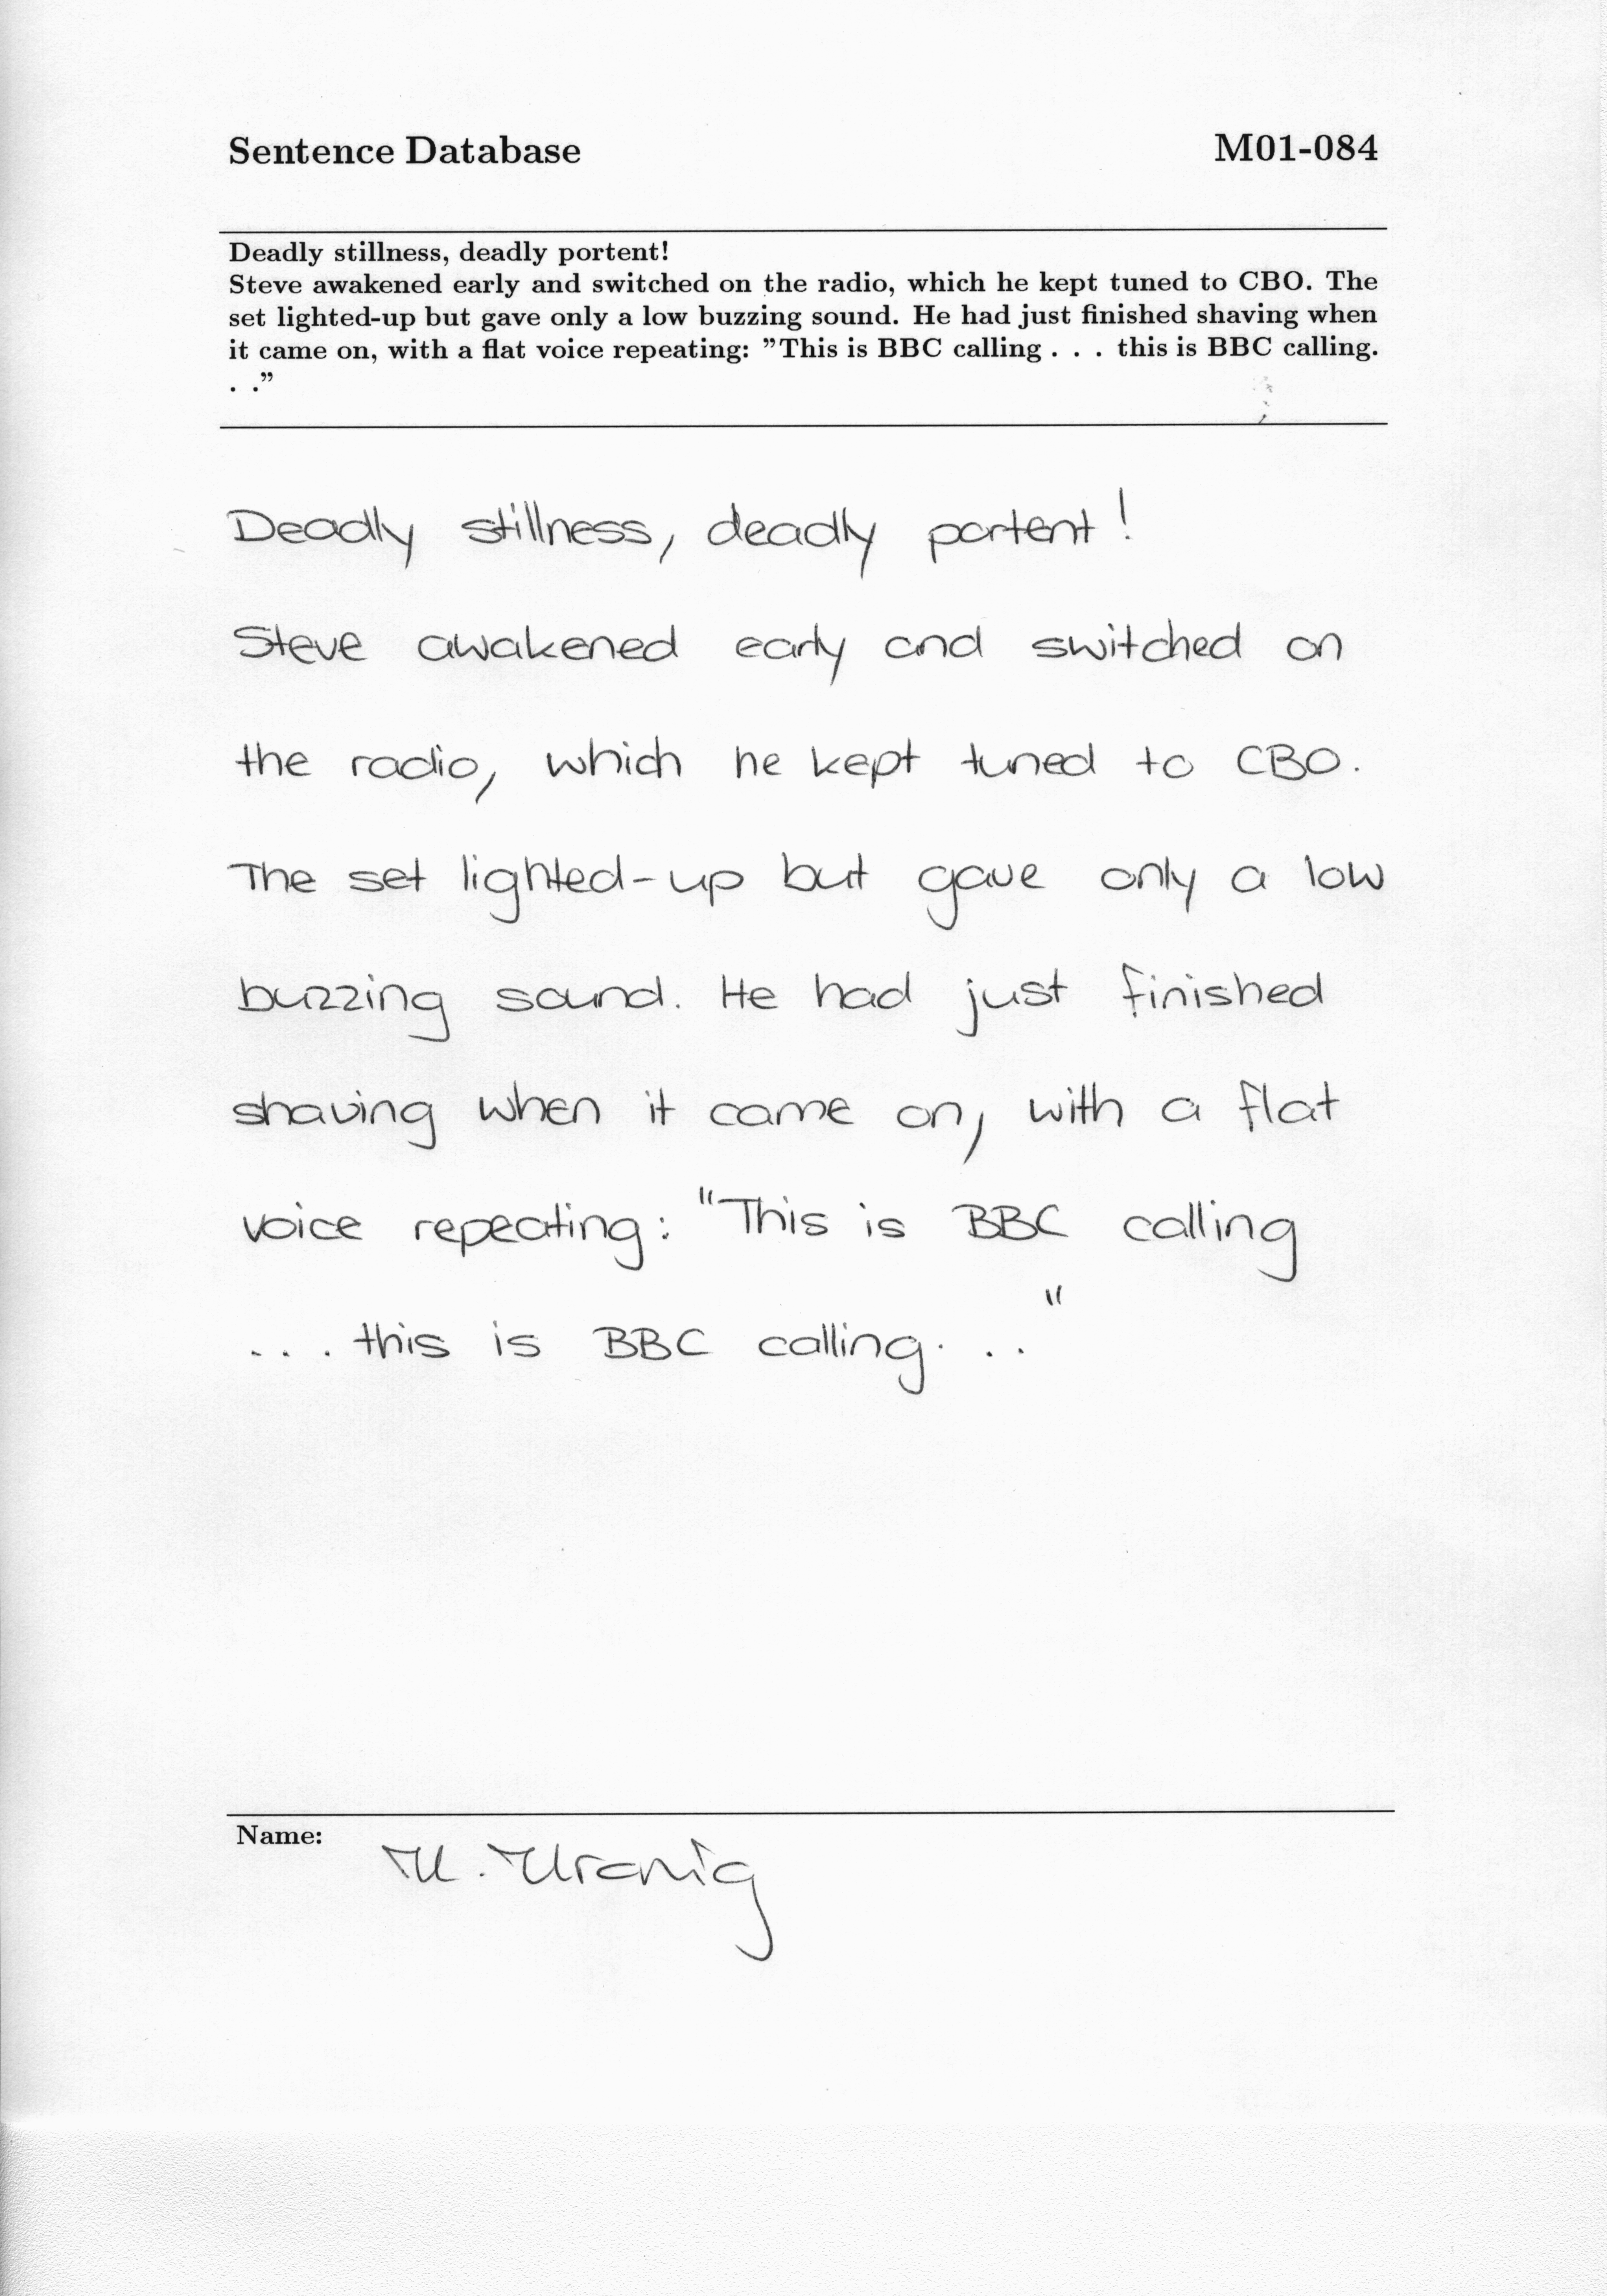 Sentence Database M01-084
Deadly stillness, deadly portent!
Steve awakened early and switched on the radio, which he kept tuned to CBO. The
set lighted-up but gave only a low buzzing sound. He had just finished shaving when
it came on, with a flat voice repeating: ”This is BBC calling . . . this is BBC calling.
. .”
Deadly stillness, deadly portent!
Steve awakened early and switched on
the radio, which he kept tuned to CBO.
The set lighted-up but gave only a low
buzzing sound. He had just finished
shaving when it came on, with a flat
voice repeating: "This is BBC calling
... this is BBC calling. . ."
Name: